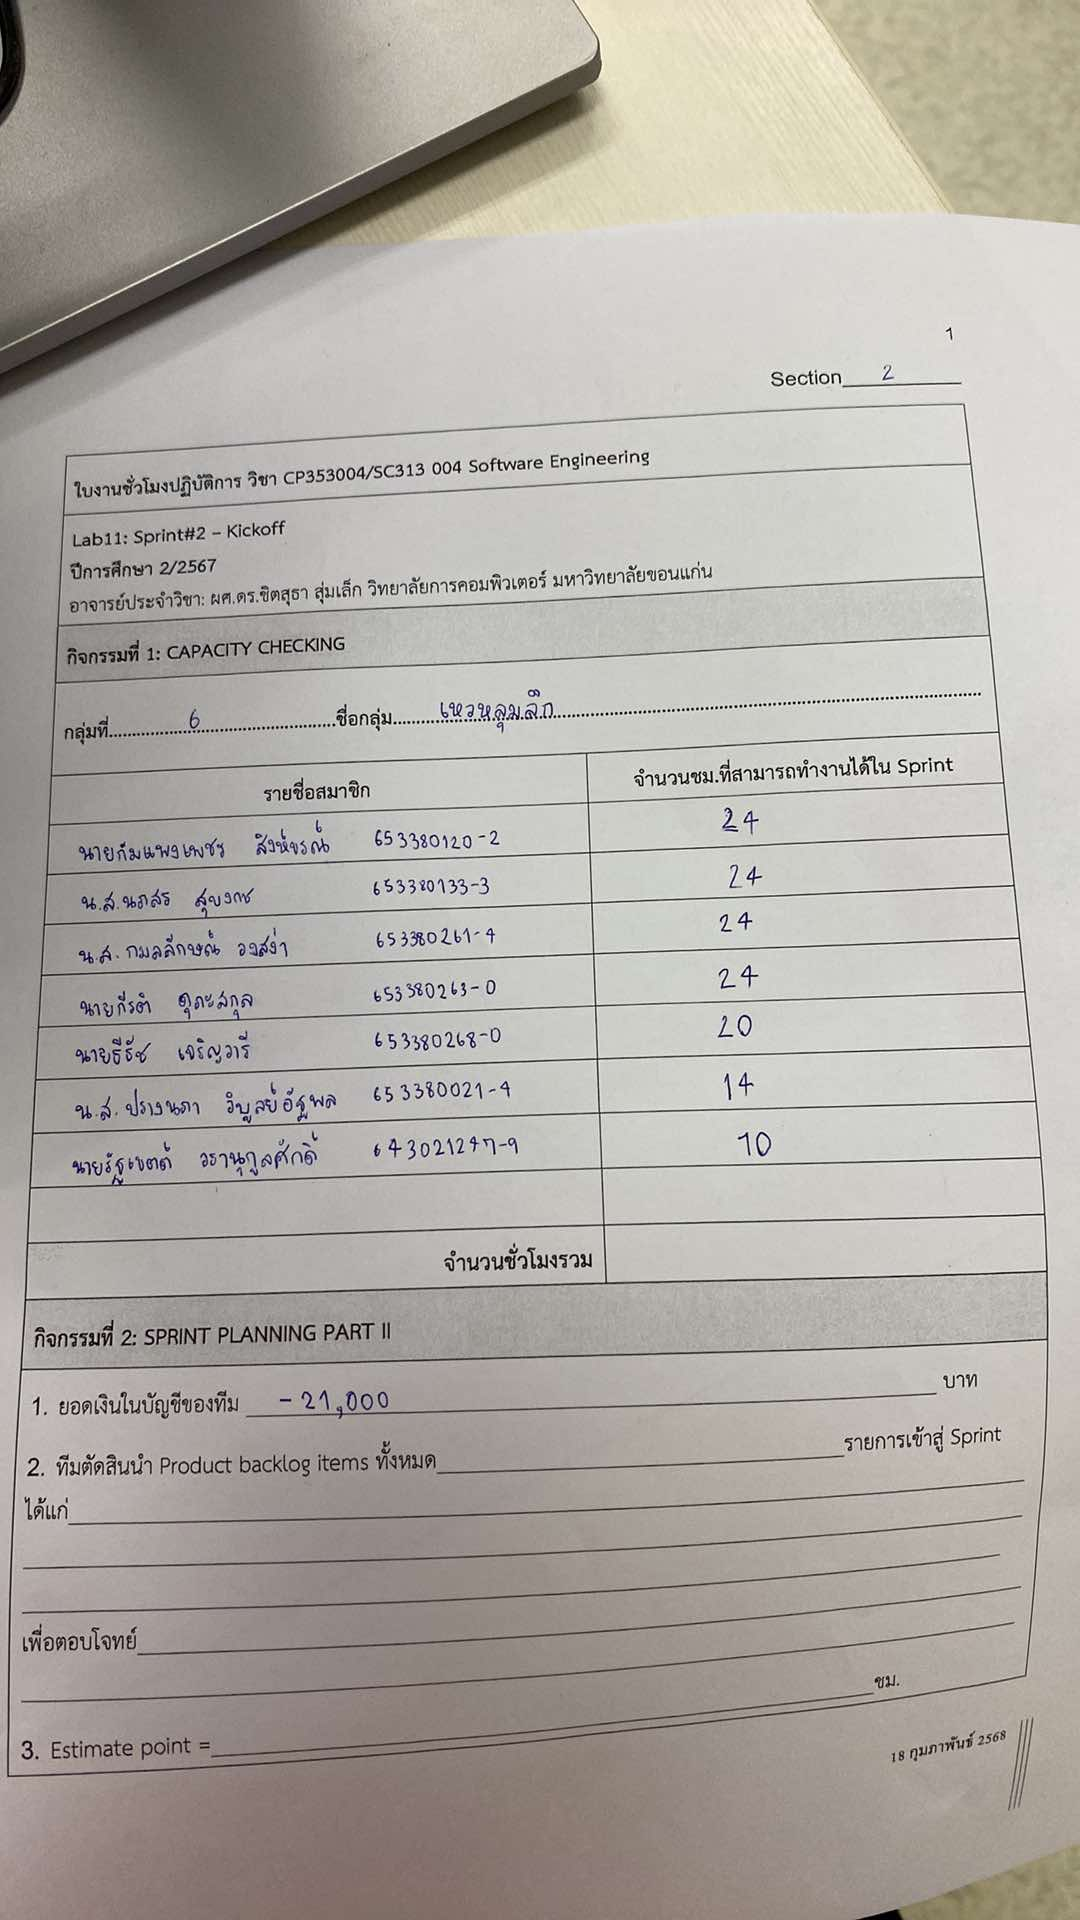 1
Section 2
ใบงานชั่วโมงปฏิบัติการ วิชา CP353004/SC313 004 Software Engineering
Lab11: Sprint#2 – Kickoff
ปีการศึกษา 2/2567
อาจารย์ประจำวิชา: ผศ.ดร.ชิตสุธา สุ่มเล็ก วิทยาลัยการคอมพิวเตอร์ มหาวิทยาลัยขอนแก่น
กิจกรรมที่ 1: CAPACITY CHECKING
กลุ่มที่ 6 ชื่อกลุ่ม เหวหลุมลึก
รายชื่อสมาชิก จำนวนชม.ที่สามารถทำงานได้ใน Sprint
นายกัมแพงเพชร สิงห์ขรณ์ 653380120-2 24
น.ส.นภสร 653380133-3 24
น.ส. กมลลักษณ์ วงสง่า 653380261-4 24
นายกีรติ ดุภะสกุล 653380263-0 24
นายธีรัช เจริญวารี 653380268-0 20
น.ส. ปรางนภา วิบูลย์อัฐพล 653380021-4 14
นายรัฐเขตต์ วรานุกูลศักดิ์ 643021247-9 10
จำนวนชั่วโมงรวม
กิจกรรมที่ 2: SPRINT PLANNING PART II
1. ยอดเงินในบัญชีของทีม -21,000 บาท
2. ทีมตัดสินนำ Product backlog items ทั้งหมด รายการเข้าสู่ Sprint
ได้แก่
เพื่อตอบโจทย์
3. Estimate point = ชม.
18 กุมภาพันธ์ 2568